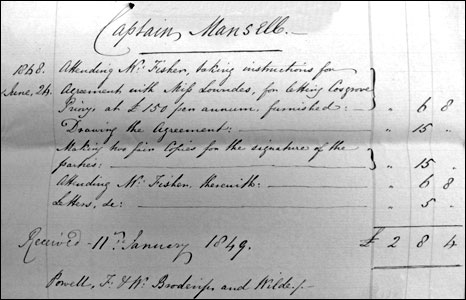 Captain Mansell.
1848. Attending Mr. Fisher, taking instructions for
June, 24. Agreement with Miss Lowndes, for letting Cosgrove
Priory at £150 per annum furnished:- " 6 8
Drawing the Agreement: " 15 "
Making two fair Copies for the signature of the
parties: " 15 "
Attending Mr. Fisher therewith: " 6 8
Letters, &c: " 5 "
Received 11th January 1849. £ 2 8 4
Powell, F. & W. Broderip, and Wilde,